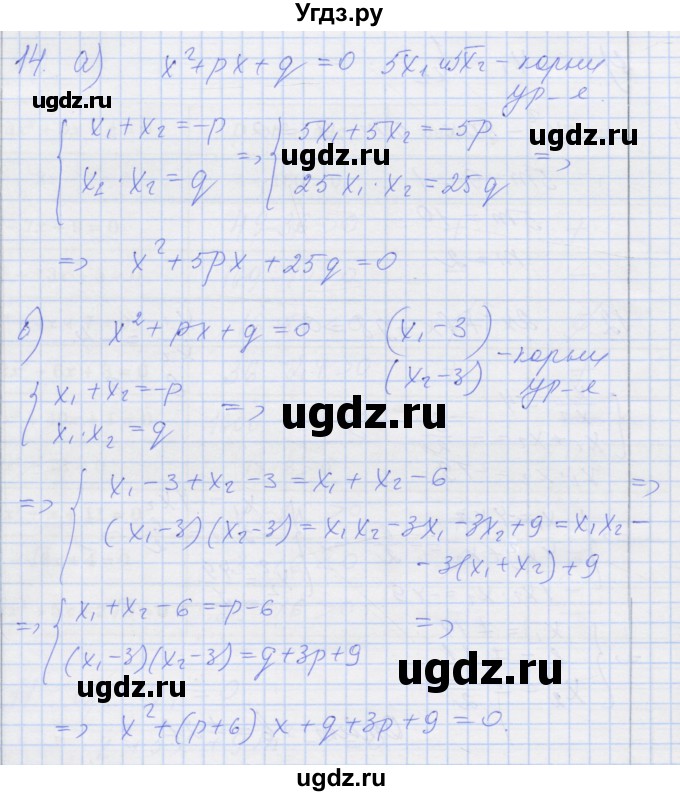 Угдз.ру
14. а) x²+px+q=0 5x₁ и 5x₂ - корни
ур-я.
{ x₁+x₂=-p => { 5x₁+5x₂=-5p =>
x₁·x₂=q 25x₁·x₂=25q
ugdz.ru ugdz.ru
=> x²+5px+25q=0
б) x²+px+q=0 (x₁-3)
(x₂-3) - корни
ур-я.
{ x₁+x₂=-p =>
x₁·x₂=q
ugdz.ru
=> { x₁-3+x₂-3=x₁+x₂-6 =>
(x₁-3)(x₂-3)=x₁x₂-3x₁-3x₂+9=x₁x₂-
-3(x₁+x₂)+9
ugdz.ru ugdz.ru
=> { x₁+x₂-6=-p-6 =>
(x₁-3)(x₂-3)=q+3p+9
ugdz.ru ugdz.ru
=> x²+(p+6)x+q+3p+9=0.
ugdz.ru